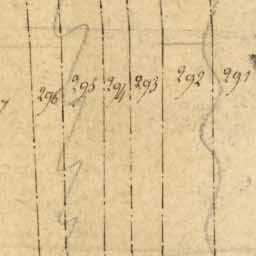 296 295 294 293 292 291